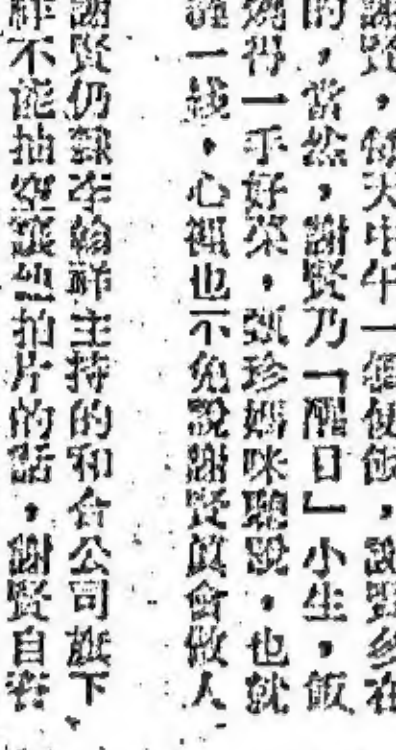 謝賢，每天中午一個便飯，說賢多在
的，當然，謝賢乃「醒目」小生，飯
得一手好菜，張珍媽咪聽說，也就
一線，心裡也不免說謝賢真會做人
謝賢仍隸李翰祥主持的和合公司旗下
祥不能抽空讓他拍片的話，謝賢自